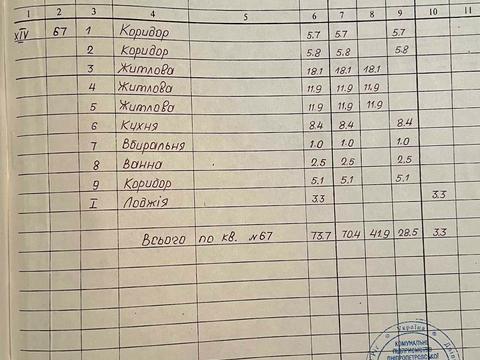 1 2 3 4 5 6 7 8 9 10 11
XIV 67 1 Коридор 5.7 5.7 5.7
2 Коридор 5.8 5.8 5.8
3 Житлова 18.1 18.1 18.1
4 Житлова 11.9 11.9 11.9
5 Житлова 11.9 11.9 11.9
6 Кухня 8.4 8.4 8.4
7 Вбиральня 1.0 1.0 1.0
8 Ванна 2.5 2.5 2.5
9 Коридор 5.1 5.1 5.1
I Лоджія 3.3 3.3
Всього по кв. №67 73.7 70.4 41.9 28.5 3.3
Україна
КОМУНАЛЬНЕ
ПІДПРИЄМСТВО